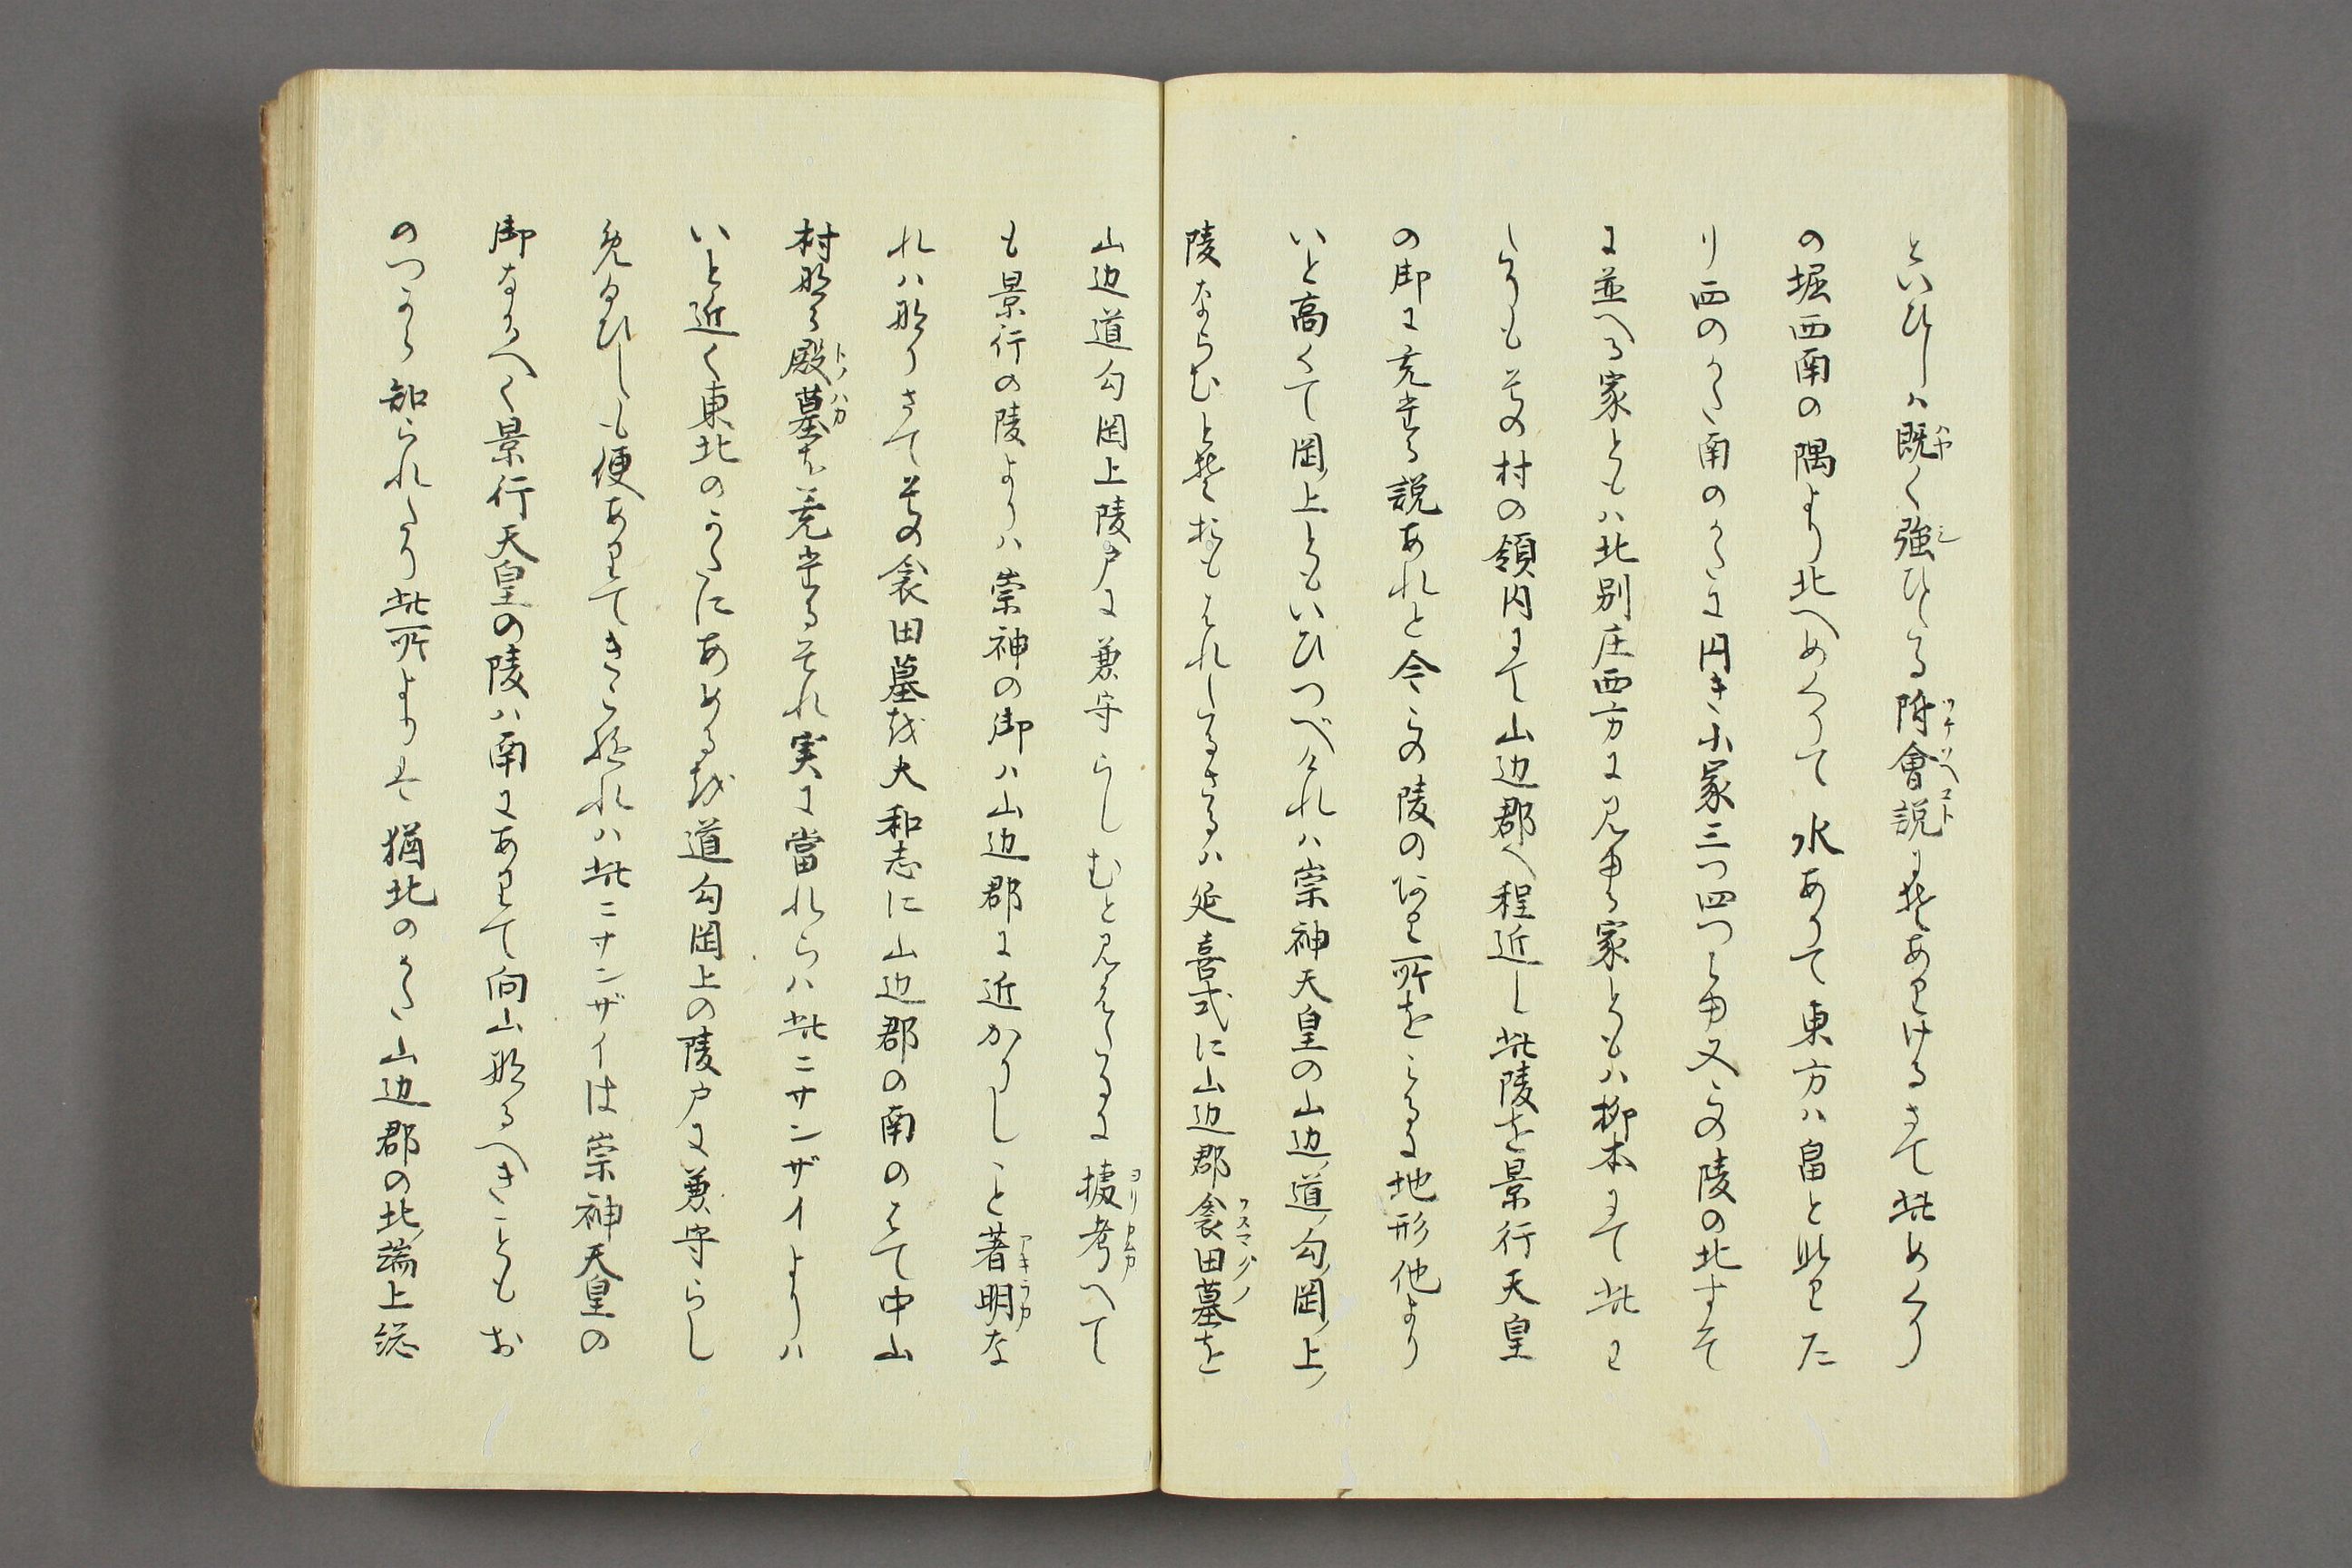 といひしハ既く強ひたる附會説にそありけるさて此めくり
の堀西南の隅より北へめくりて水ありて東方ハ畠と此わた
り西のかた南のかたに円き小冢三つ四つ見ゆ又この陵の北すそ
に並へる家ともハ北別庄西方に見ゆる家ともハ柳本にて此わ
たりも其の村の領内にて山辺郡へ程近し此陵を景行天皇
の御に充奉る説あれと今この陵のある所をみるに地形他より
いと高くて岡ノ上ともいひつべけれハ崇神天皇の山辺ノ道ノ勾ノ岡ノ上ノ
陵ならむとそおもはれしるさるハ延喜式に山辺郡衾田墓を
山辺道勾岡上陵戸に兼守らしむと見えたるに據考へて
も景行の陵よりハ崇神の御ハ山辺郡に近かりしこと著明な
れハ那りさて其の衾田墓を大和志に山辺郡の南のはて中山
村那る殿墓に充奉るそれ実に當れらハ此ニサンザイよりハ
いと近く東北のかたにあめるを道勾岡上の陵戸に兼守らし
免多ひしも便ありてきこ江れハ此ニサンザイは崇神天皇の
御なるへく景行天皇の陵ハ南にありて向山那るへきこともお
のつから知られたり此所よりハ猶北のかた山辺郡の北ノ端上総